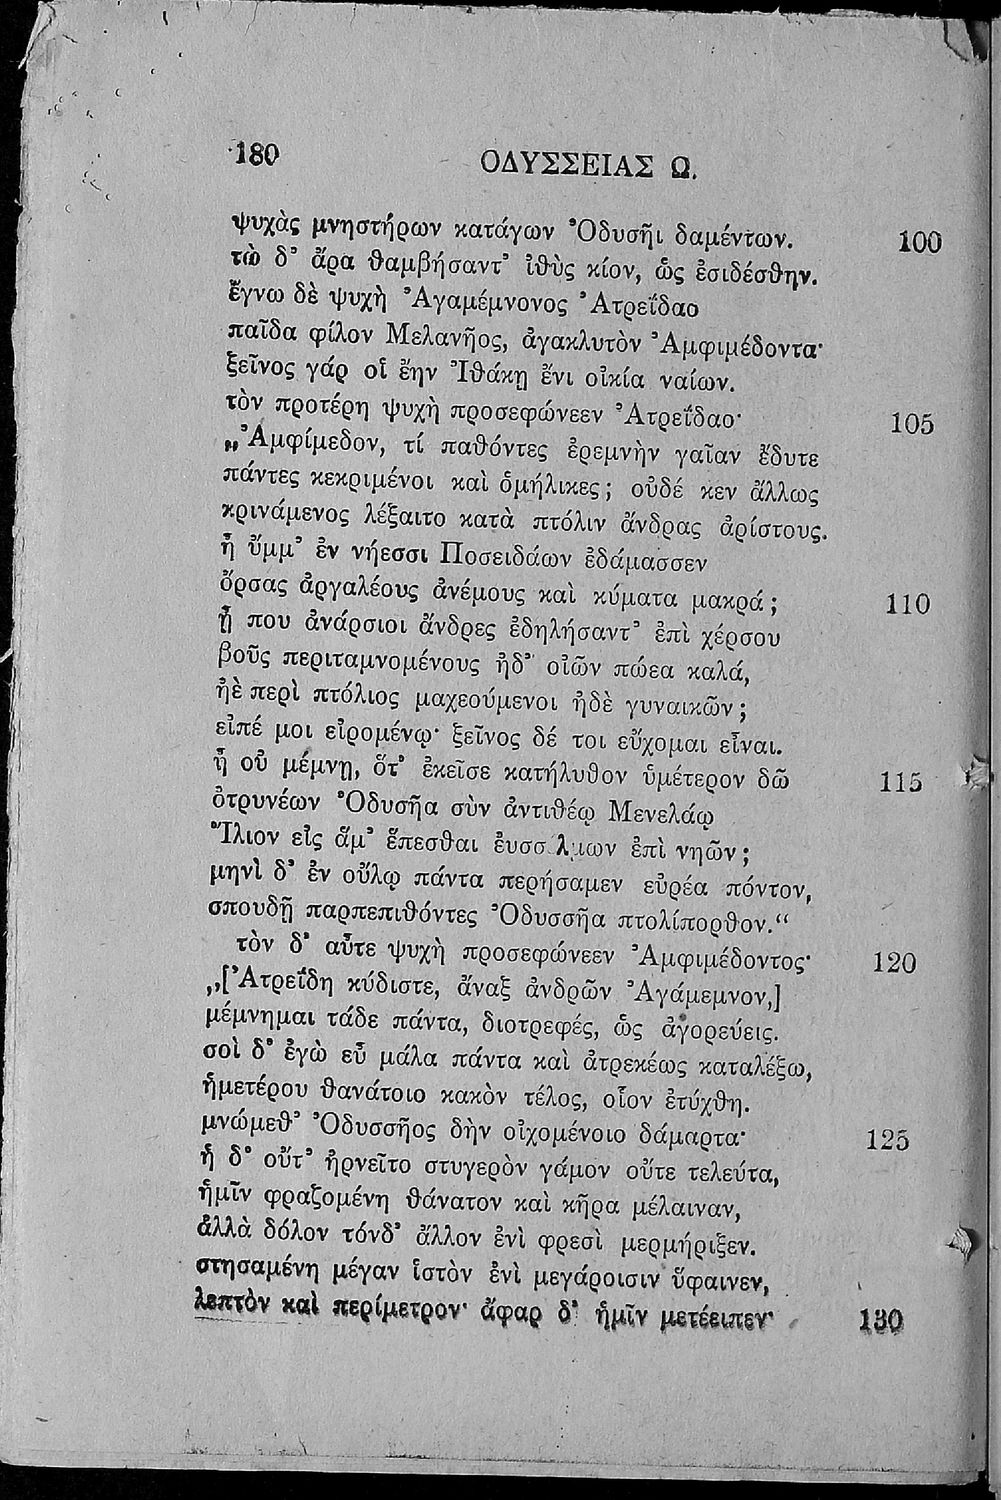 180
ΟΔΥΣΣΕΙΑΣ Ω.
ψυχὰς μνηστήρων κατάγων Ὀδυσῆι δαμέντων. 100
τὼ δ’ ἄρα θαμβήσαντ’ ἰθὺς κίον, ὡς ἐσιδέσθην.
ἔγνω δὲ ψυχὴ Ἀγαμέμνονος Ἀτρεΐδαο
παῖδα φίλον Μελανῆος, ἀγακλυτὸν Ἀμφιμέδοντα·
ξεῖνος γάρ οἱ ἔην Ἰθάκῃ ἔνι οἰκία ναίων.
τὸν προτέρη ψυχὴ προσεφώνεεν Ἀτρεΐδαο· 105
„Ἀμφίμεδον, τί παθόντες ἐρεμνὴν γαῖαν ἔδυτε
πάντες κεκριμένοι καὶ ὁμήλικες; οὐδέ κεν ἄλλως
κρινάμενος λέξαιτο κατὰ πτόλιν ἄνδρας ἀρίστους.
ἦ ὔμμ’ ἐν νήεσσι Ποσειδάων ἐδάμασσεν
ὄρσας ἀργαλέους ἀνέμους καὶ κύματα μακρά; 110
ἦ που ἀνάρσιοι ἄνδρες ἐδηλήσαντ’ ἐπὶ χέρσου
βοῦς περιταμνομένους ἠδ’ οἰῶν πώεα καλά,
ἠὲ περὶ πτόλιος μαχεούμενοι ἠδὲ γυναικῶν;
εἰπέ μοι εἰρομένῳ· ξεῖνος δέ τοι εὔχομαι εἶναι.
ἦ οὐ μέμνῃ, ὅτ’ ἐκεῖσε κατήλυθον ὑμέτερον δῶ 115
ὀτρυνέων Ὀδυσῆα σὺν ἀντιθέῳ Μενελάῳ
Ἴλιον εἰς ἅμ’ ἕπεσθαι ἐυσσέλμων ἐπὶ νηῶν;
μηνὶ δ’ ἐν οὔλῳ πάντα περήσαμεν εὐρέα πόντον,
σπουδῇ παρπεπιθόντες Ὀδυσσῆα πτολίπορθον.“
τὸν δ’ αὖτε ψυχὴ προσεφώνεεν Ἀμφιμέδοντος· 120
„[Ἀτρεΐδη κύδιστε, ἄναξ ἀνδρῶν Ἀγάμεμνον,]
μέμνημαι τάδε πάντα, διοτρεφές, ὡς ἀγορεύεις.
σοὶ δ’ ἐγὼ εὖ μάλα πάντα καὶ ἀτρεκέως καταλέξω,
ἡμετέρου θανάτοιο κακὸν τέλος, οἷον ἐτύχθη.
μνώμεθ’ Ὀδυσσῆος δὴν οἰχομένοιο δάμαρτα· 125
ἡ δ’ οὔτ’ ἠρνεῖτο στυγερὸν γάμον οὔτε τελεύτα,
ἡμῖν φραζομένη θάνατον καὶ κῆρα μέλαιναν,
ἀλλὰ δόλον τόνδ’ ἄλλον ἐνὶ φρεσὶ μερμήριξεν.
στησαμένη μέγαν ἱστὸν ἐνὶ μεγάροισιν ὕφαινεν,
λεπτὸν καὶ περίμετρον· ἄφαρ δ’ ἡμῖν μετέειπεν· 130